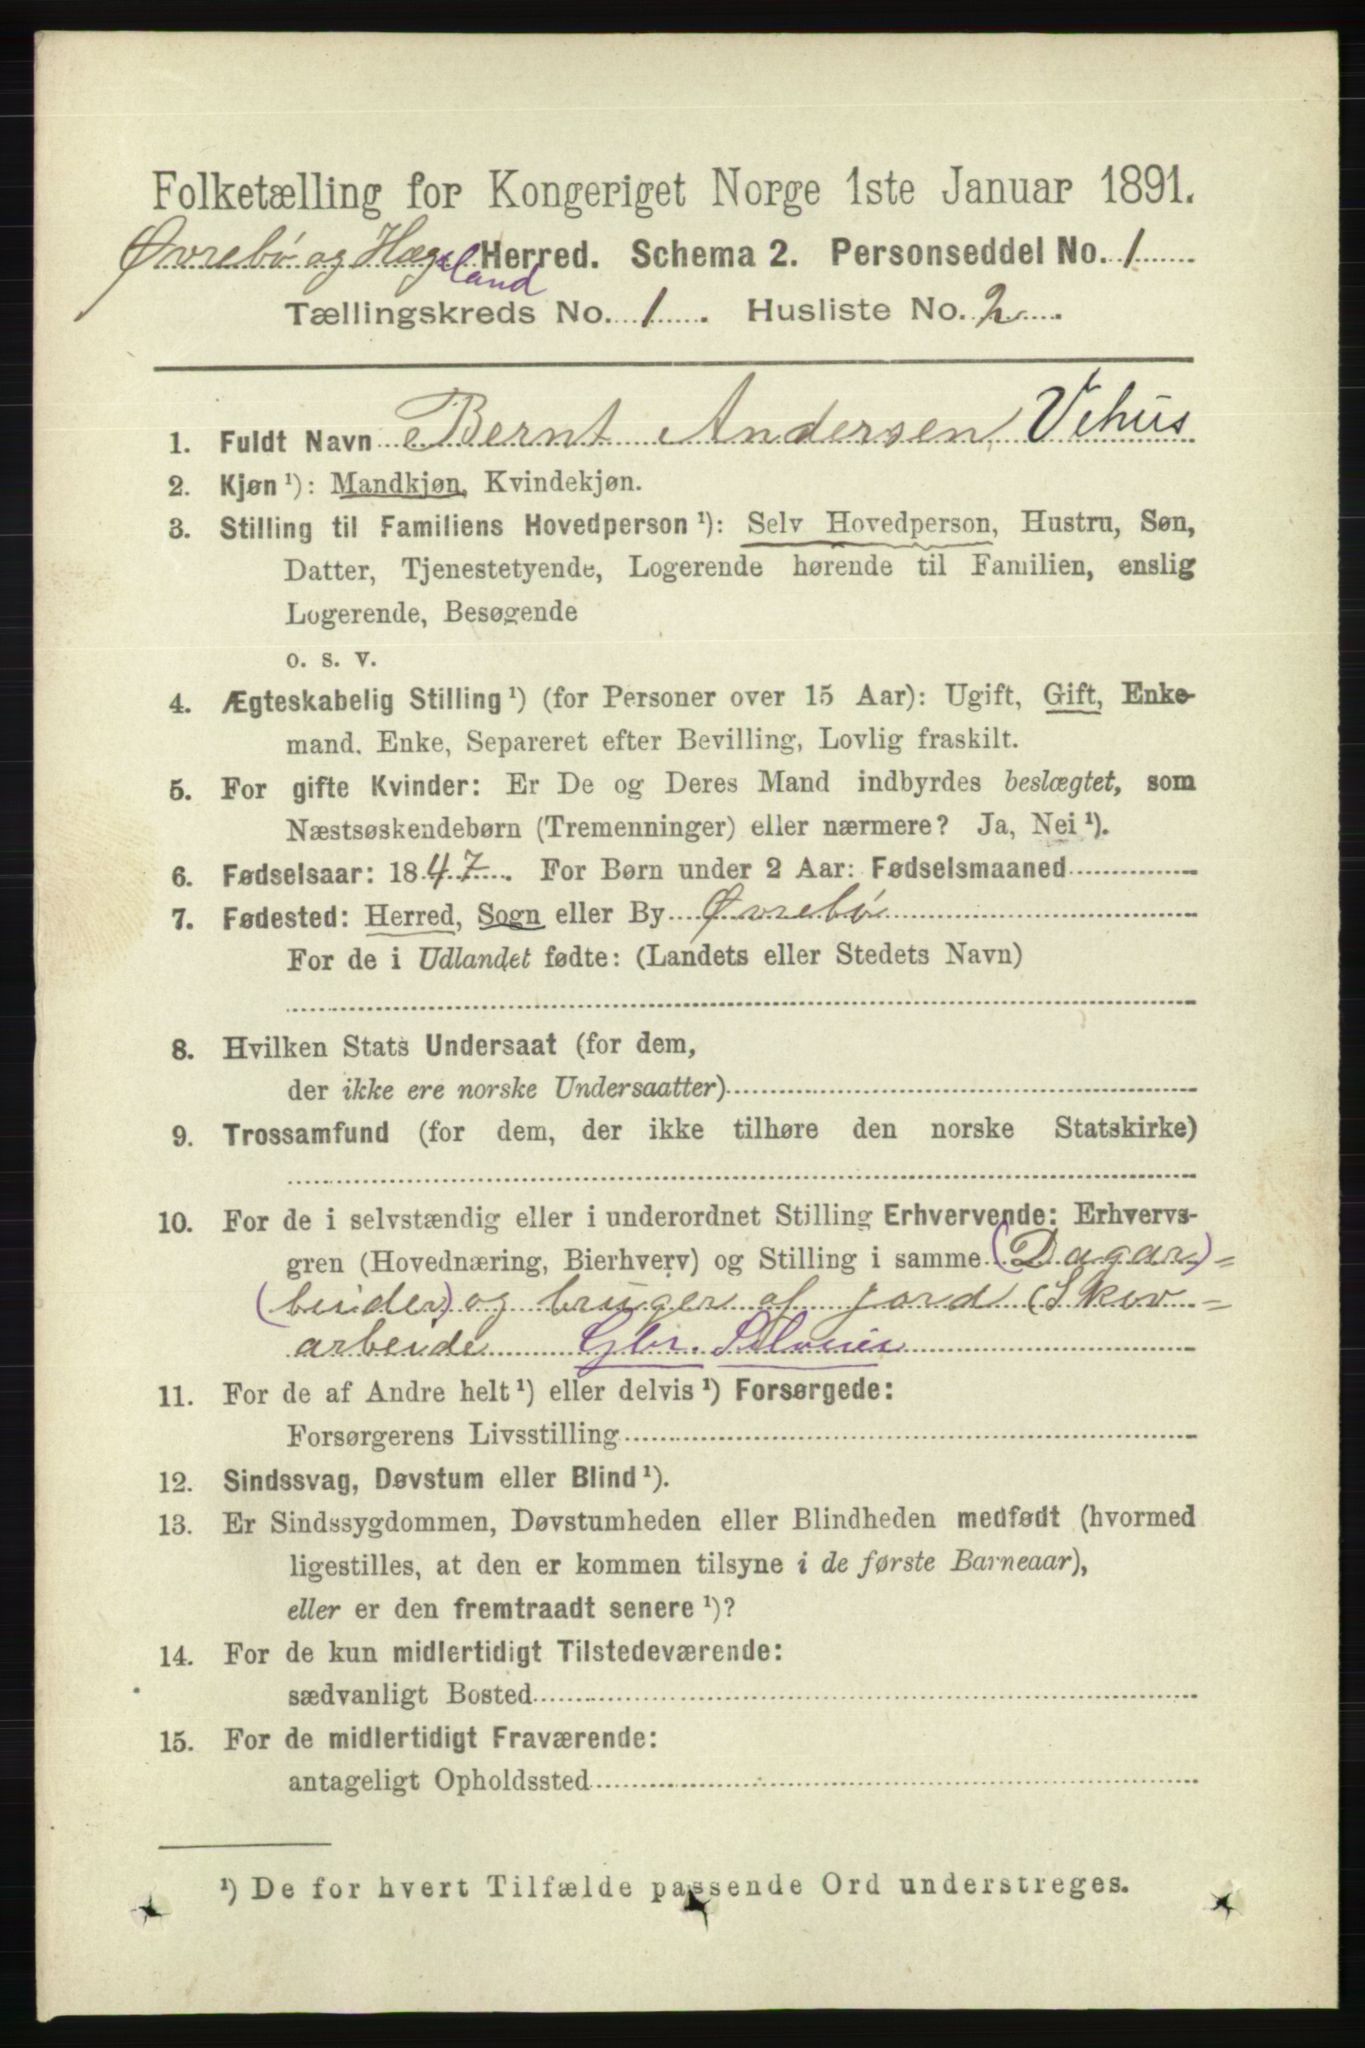 Folketælling for Kongeriget Norge 1ste Januar 1891.
Øvrebø og Hægeland Herred. Schema 2. Personseddel No. 1
Tællingskreds No. 1. Husliste No. 2.
1. Fuldt Navn Bernt Andersen Vehus
2. Kjøn ¹): Mandkjøn, Kvindekjøn.
3. Stilling til Familiens Hovedperson ¹): Selv Hovedperson, Hustru, Søn,
Datter, Tjenestetyende, Logerende hørende til Familien, enslig
Logerende, Besøgende
o. s. v.
4. Ægteskabelig Stilling ¹) (for Personer over 15 Aar): Ugift, Gift, Enke-
mand, Enke, Separeret efter Bevilling, Lovlig fraskilt.
5. For gifte Kvinder: Er De og Deres Mand indbyrdes beslægtet, som
Næstsøskendebørn (Tremenninger) eller nærmere? Ja, Nei ¹).
6. Fødselsaar: 1847. For Børn under 2 Aar: Fødselsmaaned
7. Fødested: Herred, Sogn eller By Øvrebø
For de i Udlandet fødte: (Landets eller Stedets Navn)
8. Hvilken Stats Undersaat (for dem,
der ikke ere norske Undersaatter)
9. Trossamfund (for dem, der ikke tilhøre den norske Statskirke)
10. For de i selvstændig eller i underordnet Stilling Erhvervende: Erhvervs-
gren (Hovednæring, Bierhverv) og Stilling i samme (Dagar)=
(beider) og bruger af jord (Skov=
arbeide Gbr.
11. For de af Andre helt ¹) eller delvis ¹) Forsørgede:
Forsørgerens Livsstilling
12. Sindssvag, Døvstum eller Blind ¹).
13. Er Sindssygdommen, Døvstumheden eller Blindheden medfødt (hvormed
ligestilles, at den er kommen tilsyne i de første Barneaar),
eller er den fremtraadt senere ¹)?
14. For de kun midlertidigt Tilstedeværende:
sædvanligt Bosted
15. For de midlertidigt Fraværende:
antageligt Opholdssted
¹) De for hvert Tilfælde passende Ord understreges.